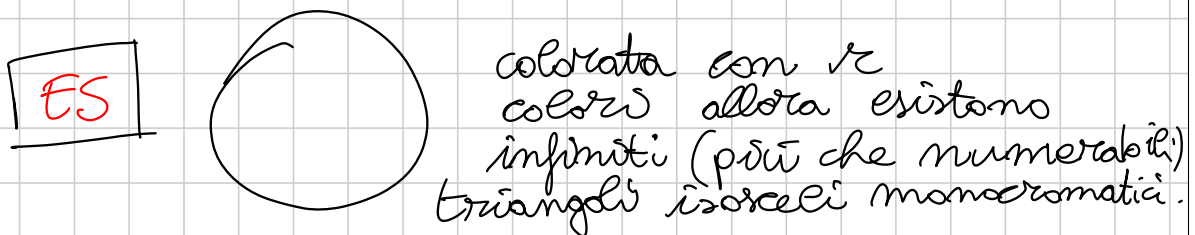 ES
colorata con r
colori allora esistono
infiniti (più che numerabili)
triangoli isosceli monocromatici.